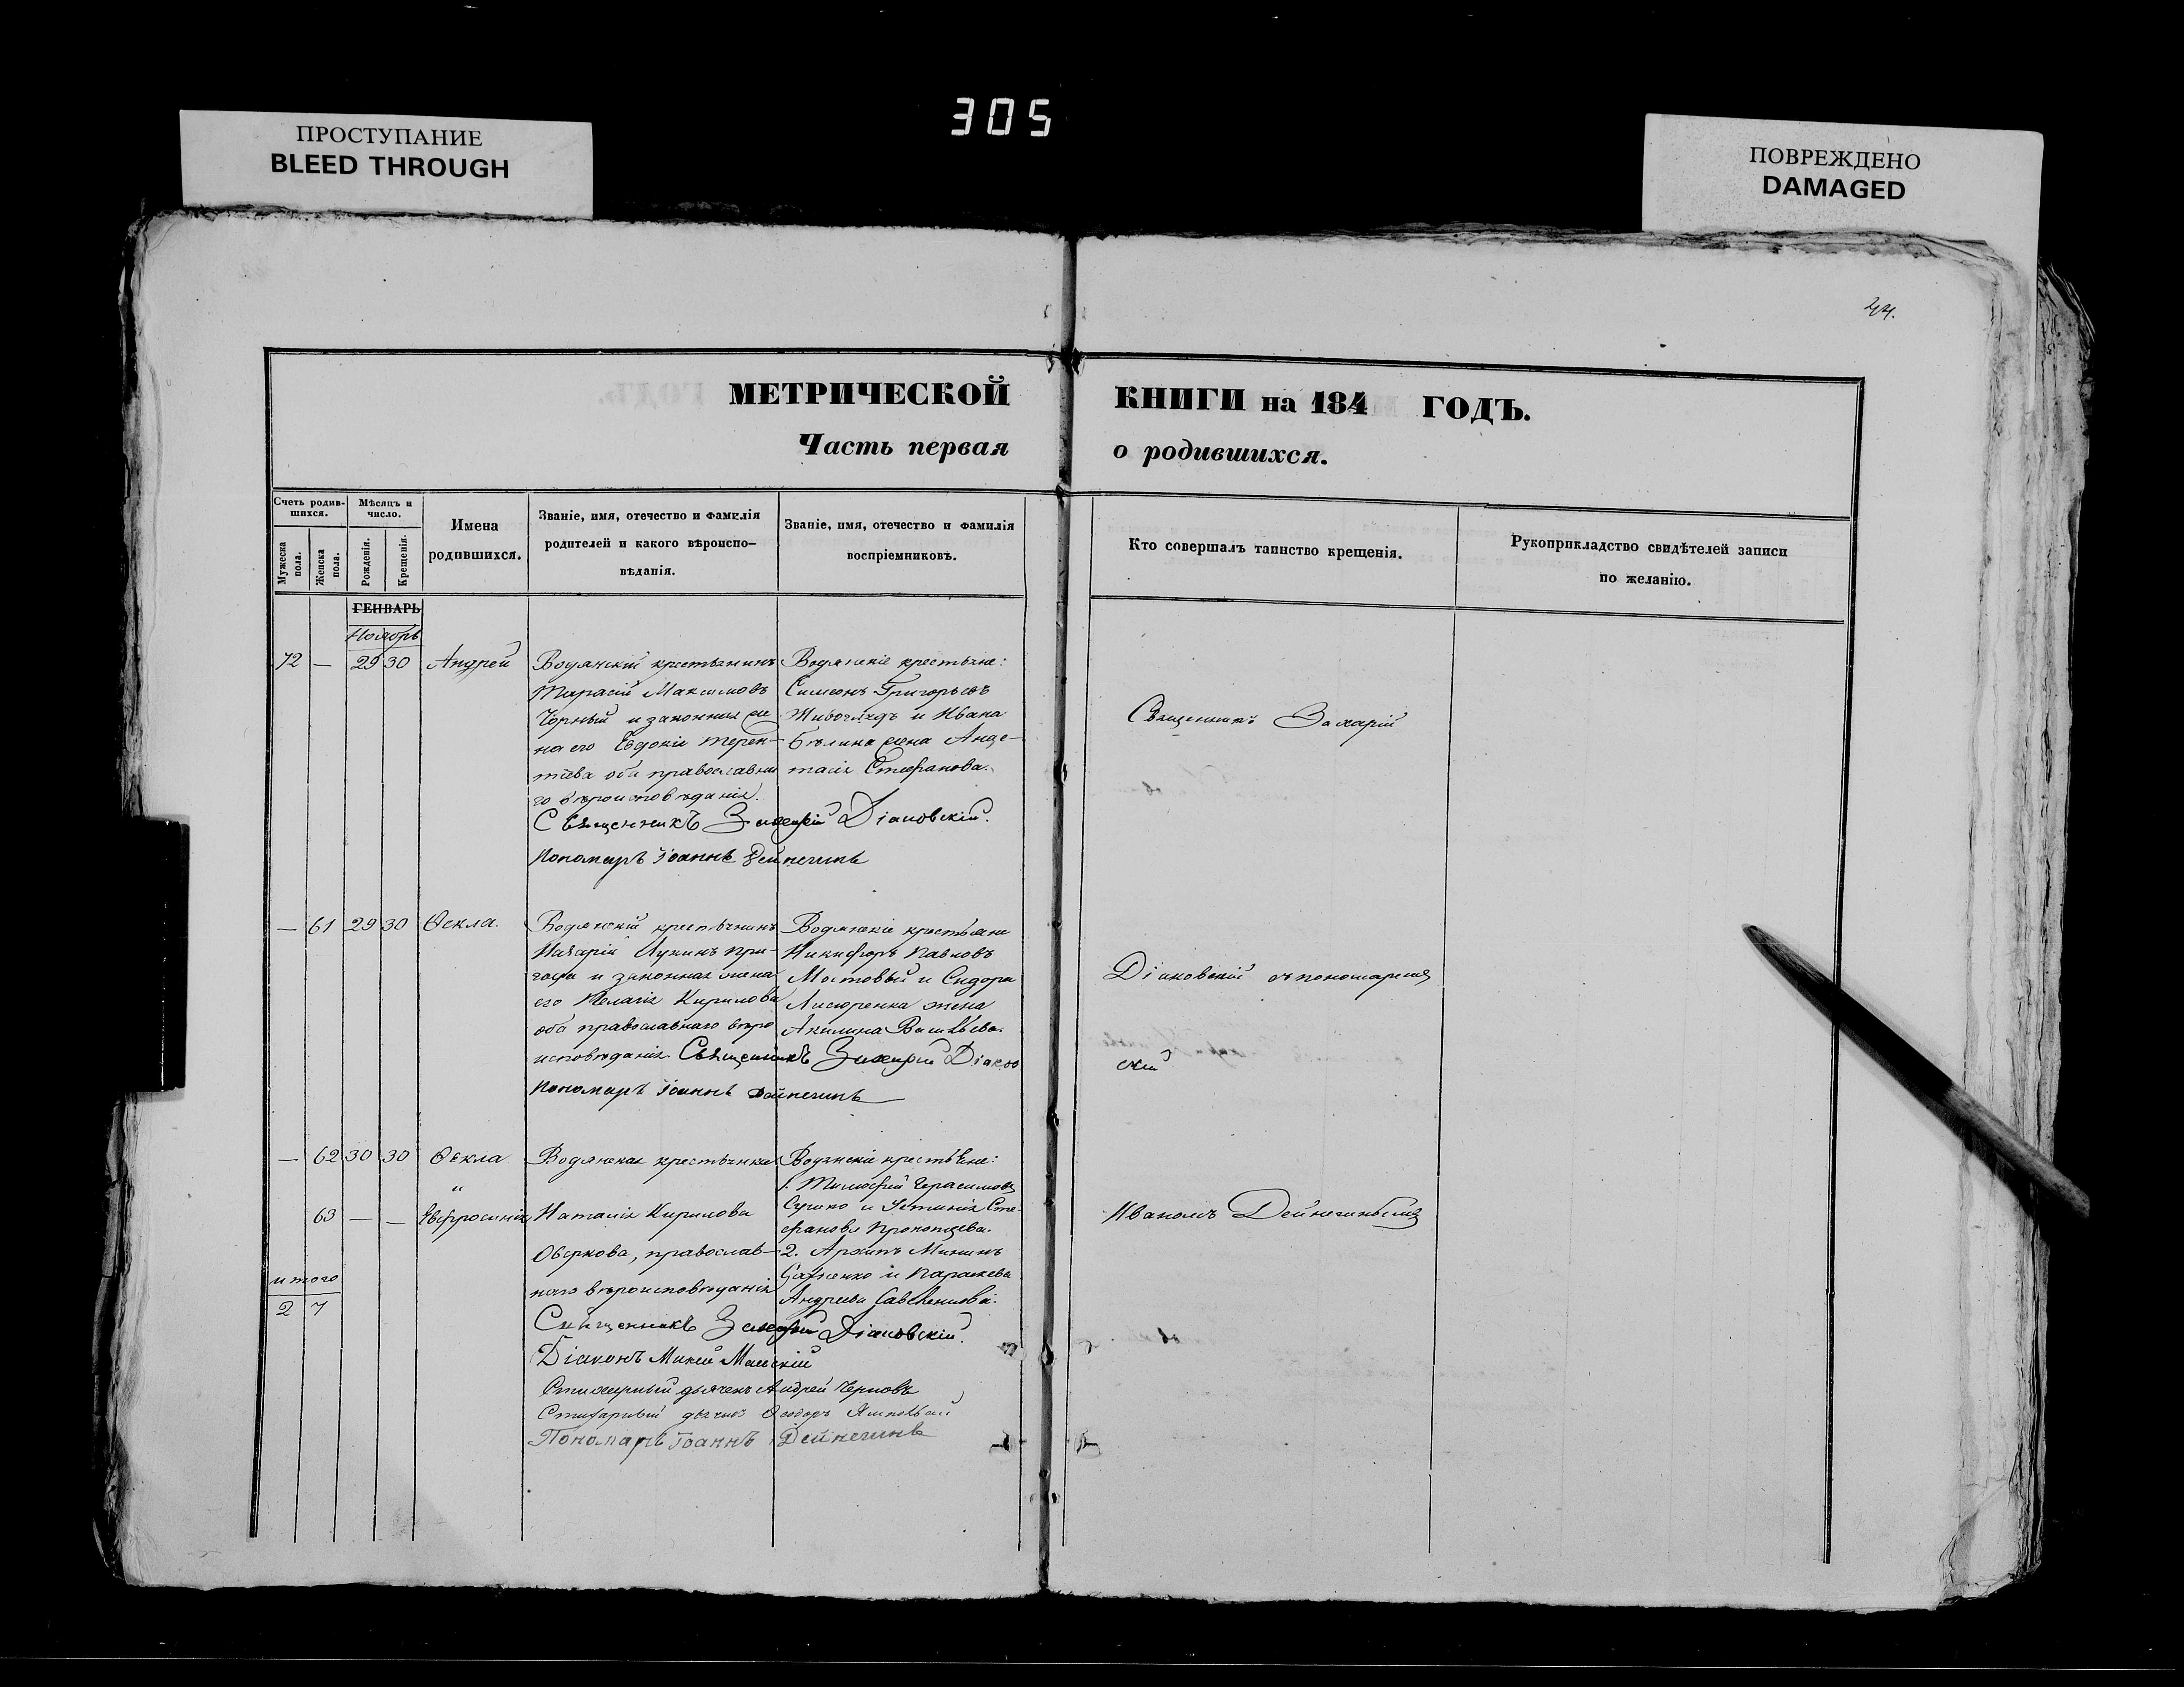 305
ПРОСТУПАНИЕ
BLEED THROUGH
ПОВРЕЖДЕНО
DAMAGED
44.
МЕТРИЧЕСКОЙ КНИГИ на 184 ГОДЪ.
Часть первая о родившихся.
Счетъ родив-
шихся.
Мужеска пола.
Женска пола.
Мѣсяцъ и
число.
Рожденія.
Крещенія.
Имена
родившихся.
Званіе, имя, отечество и фамилія
родителей и какого вѣроиспо-
вѣданія.
Званіе, имя, отечество и фамилія
воспріемниковъ.
Кто совершалъ таинство крещенія.
Рукоприкладство свидѣтелей записи
по желанію.
ГЕНВАРЬ
Ноябрь
72 — 29 30 Андрей
Водянскій крестьянинъ
Тарасій Максимовъ
Чорный и законная же
на его Евдокія Терен-
тіева оба православна
го вѣроисповѣданія.
Водянскіе крестьяне:
Симеонъ Григорьевъ
и Ивана
жена
Стефанова.
Священникъ Захарій Діаковскій.
Пономарь Іоаннъ Дейнегинъ
Священникъ Захарій
— 61 29 30 Ѳекла.
Водянскій крестьянинъ
Назарій Лукинъ При-
и законная жена
его Пелагія Кирилова
оба православнаго вѣро
исповѣданія.
Водянскіе крестьяне
Никифоръ Павловъ
Мостовый и Сидора
жена
Акилина
Священникъ Захарій Діаков
скій
Пономарь Іоаннъ Дейнегинъ
Діаковскій съ пономаремъ
— 62 30 30 Ѳекла
"
63 — — Евфросинія
Водянская крестьянка
Наталія Кирилова
Оверкова, православ-
наго вѣроисповѣданія
Водянскіе крестьяне:
1. Тимофей Герасимовъ
и Устинія Сте-
фанова
2. Архипъ Мининъ
и Параскева
Андреева
Иваномъ Дейнегинымъ
итого
2 7
Священникъ Захарій Діаковскій.
Діаконъ
Стихарный дьячекъ Андрей Черновъ
Стихарный дьячекъ Ѳеодоръ
Пономарь Іоаннъ Дейнегинъ